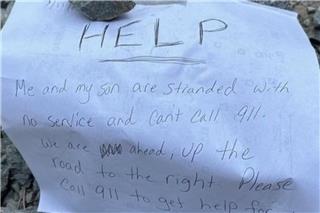 HELP
Me and my son are stranded with
no service and can't call 911.
We are ahead, up the
road to the right. Please
call 911 to get help for